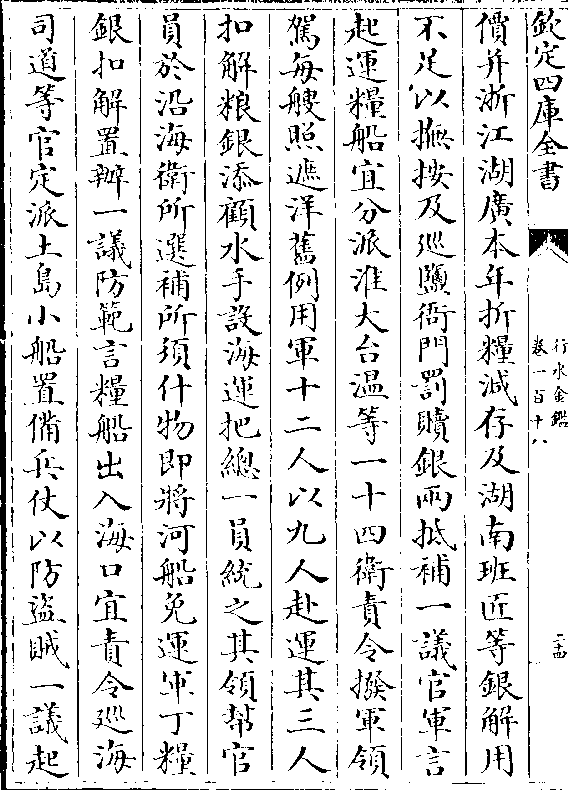 欽定四庫全書
行水金鑑
卷一百十八
二十四
價并浙江湖廣本年折糧減存及湖南班匠等銀解用
不足以撫按及巡鹽衙門罰贖銀兩抵補一議官軍言
起運糧船宜分派淮大台溫等一十四衛責令撥軍領
駕每艘照遮洋舊例用軍十二人以九人赴運其三人
扣解粮銀添顧水手設海運把總一員統之其領幇官
員於沿海衛所選補所須什物即將河船免運軍丁糧
銀扣解置辦一議防範言糧船出入海口宜責令巡海
司道等官定派土島小船置備兵仗以防盜賊一議起